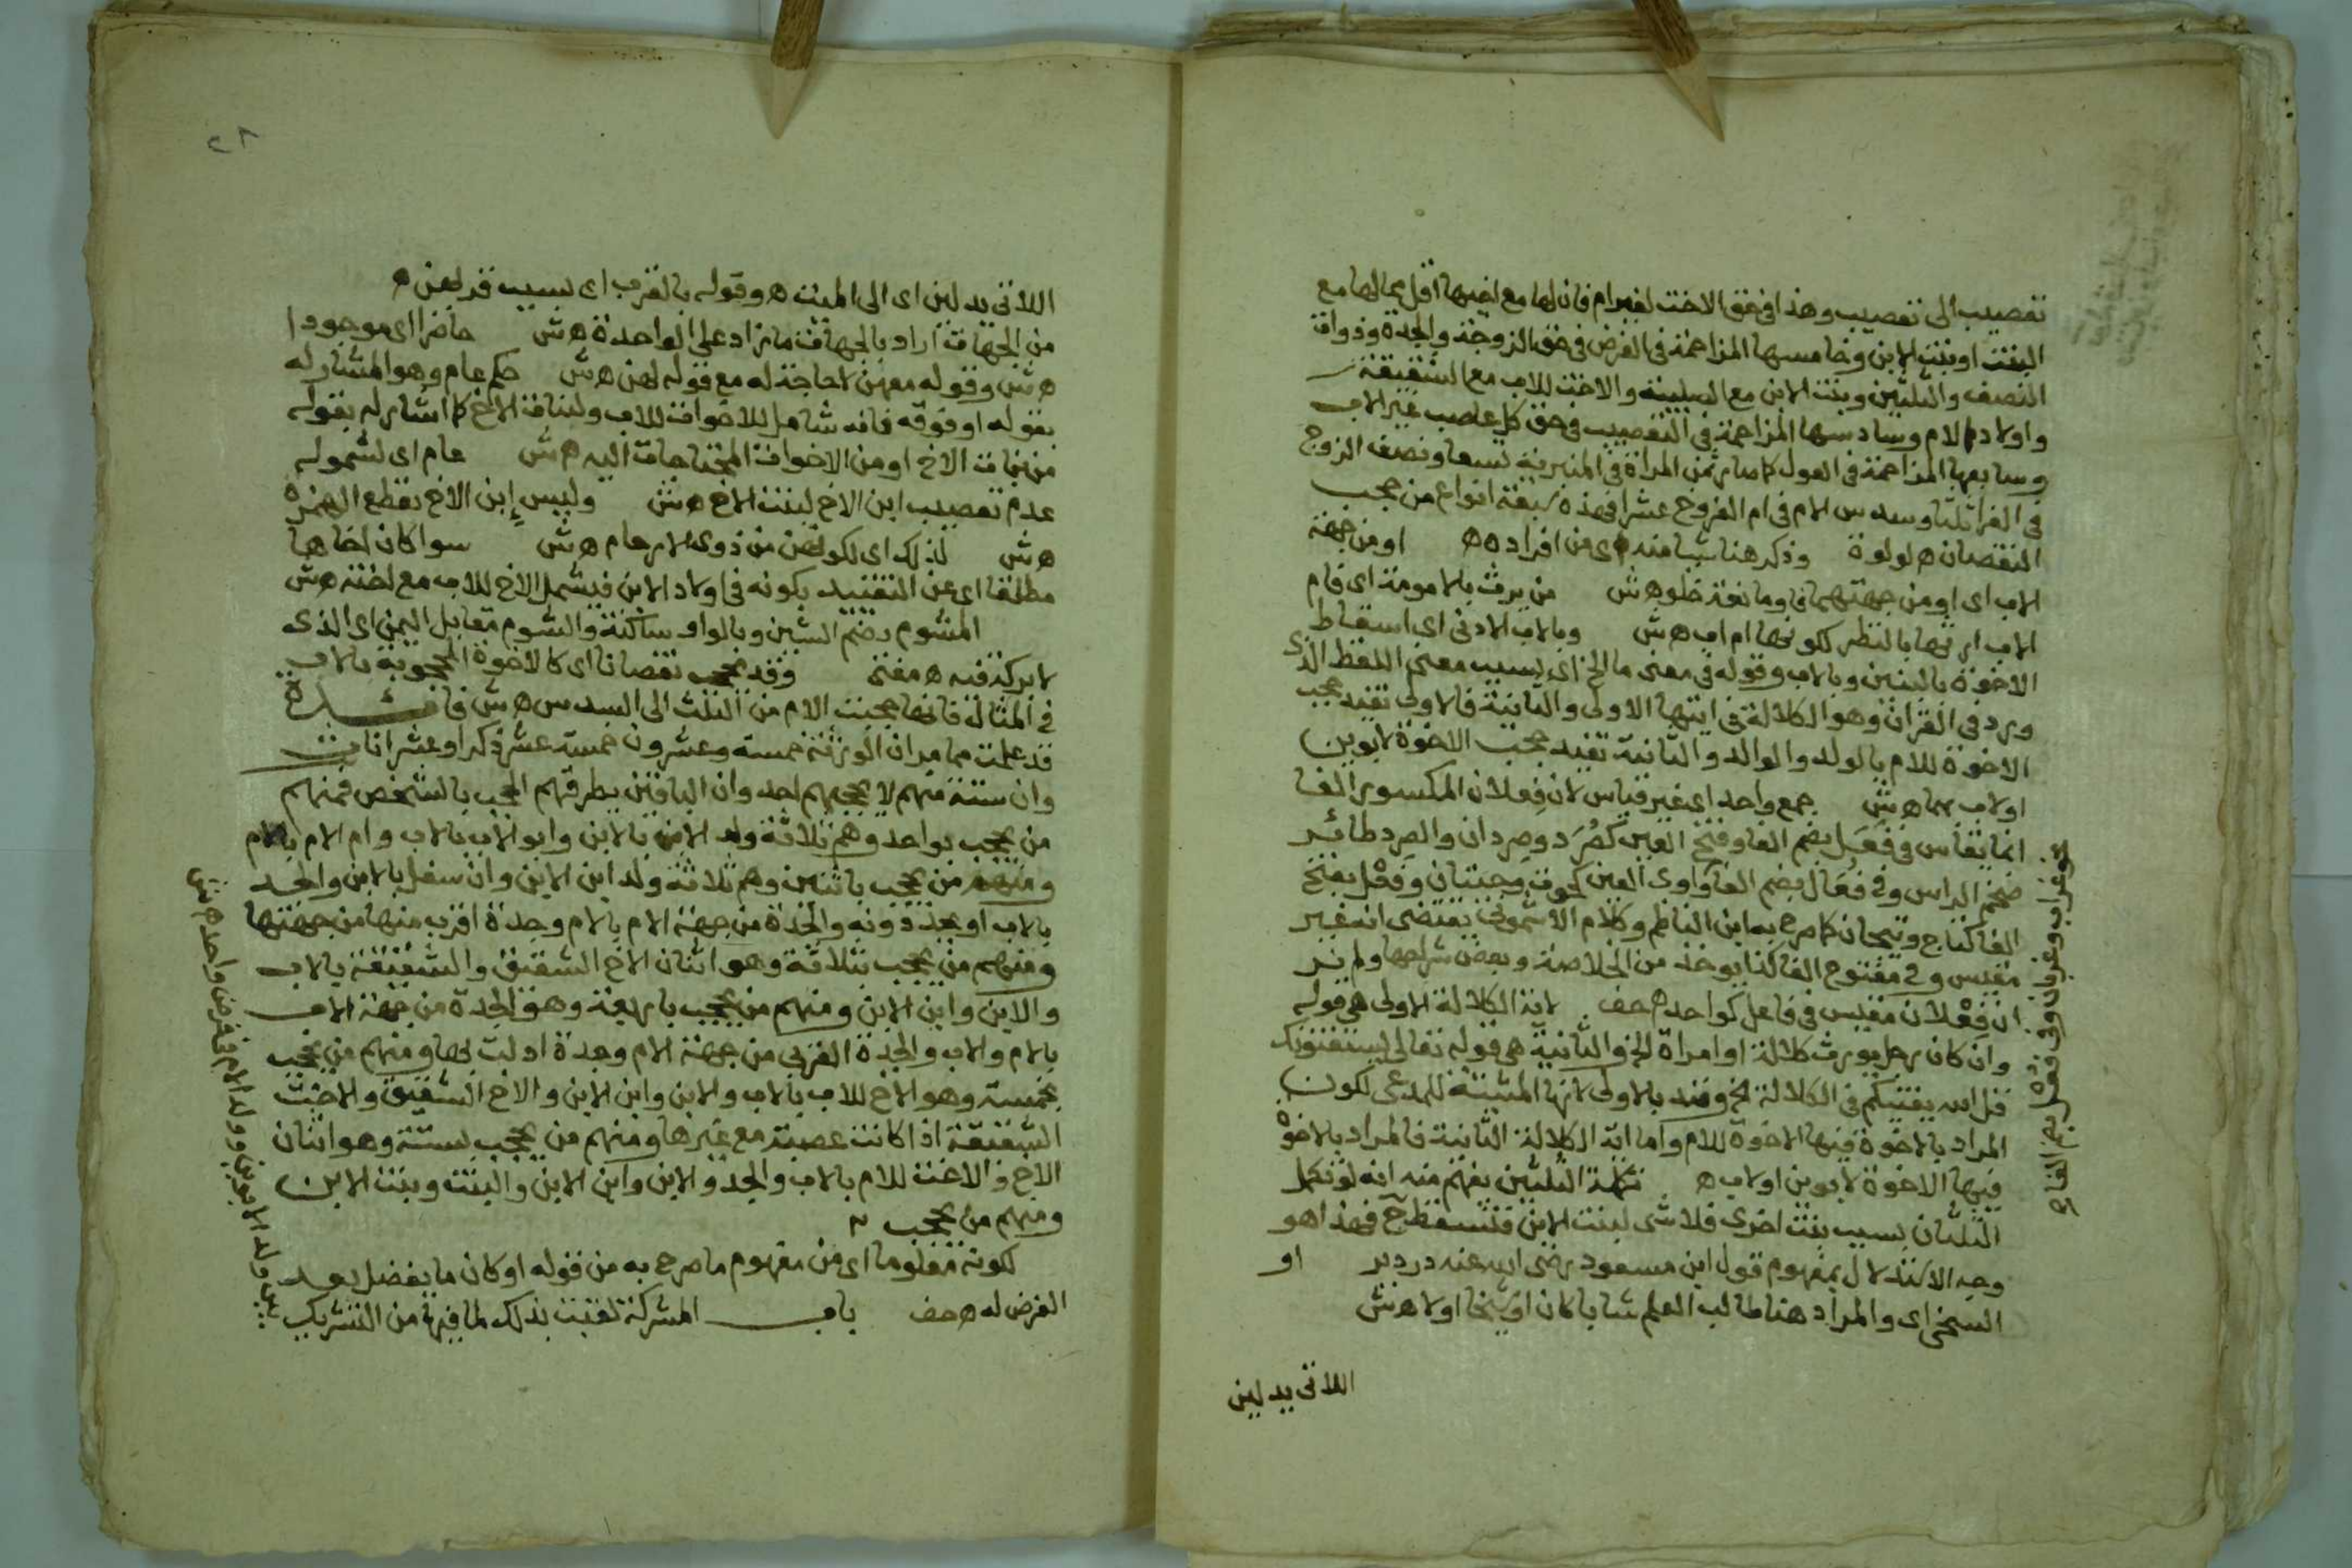 تعصيب الى تعصيب وهذا في حق الاخت لغير ام فان لها مع اخيها اقل مما لها مع
البنت او بنت الابن وخامسها المزاحمة في الفرض في حق الزوجة والجدة وذوات
النصف والثلثين وبنت الابن مع الصلبية والاخت للاب مع الشقيقة
واولاد الام وسادسها المزاحمة في التعصيب في حق كل عاصب غير الاب
وسابعها المزاحمة في العول كما صار ثمن المراة في المنبرية تسعا ونصف الزوج
في الغرا ثلثا وسدس الام في ام الفروخ عشرا فهذه سبعة انواع من حجب
النقصان ه لولوة وذكر هنا شيا منه اى من افراده ه او من جهة
الاب اى او من جهتهما فاو مانعة خلو ه ش من يرث بالامومة اى فام
الاب ارثها بالنظر لكونها ام اب ه ش وبالاب الادنى اى اسقاط
الاخوة بالبنين وبالاب وقوله في معنى ما الخ اى بسبب معنى اللفظ الذى
ورد في القران وهو الكلالة في ايتها الاولى والثانية فالاولى تفيد حجب
الاخوة للام بالولد والوالد والثانية تفيد حجب الاخوة لابوين
اولاب بهما ه ش جمع واحد اى غير قياس لان فعلان المكسور الفا
انما يقاس في فعل بضم الفا وفتح العين كصرد وصردان والصرد طائر
ضخم الراس وفي فعال بضم الفا وواوى العين كحوت وحيتان وفعل بفتح
الفا كتاج وتيجان كما صرح به ابن الناظم وكلام الاشمونى يقتضى انه غير
مقيس وفي مفتوح الفا كذا يوخذ من الخلاصة وبعض شراحها ولم نر
ان فعلان مقيس في فاعل كواحد ه حف لاية الكلالة الاولى هي قوله
وان كان رجل يورث كلالة او امراة الخ والثانية هي قوله تعالى يستفتونك
قل الله يفتيكم في الكلالة الخ وقيد بالاولى لانها المثبتة للمدعى لكون
المراد بالاخوة فيها الاخوة للام واما اية الكلالة الثانية فالمراد بالاخوة
فيها الاخوة لابوين اولاب ه تكملة الثلثين يفهم منه انه لو تكمل
الثلثان بسبب بنت اخرى فلا شى لبنت الابن فتسقط ح فهذا هو
وجه الاستدلال بمفهوم قول ابن مسعود رضى الله عنه دردير او
السخى اى والمراد هنا طالب العلم شابا كان او شيخا اولا ه ش
اللاتى يدلين
اللاتى يدلين اى الى الميت ه وقوله بالقرب اى بسبب قربهن ه
من الجهات اراد بالجهات ما زاد على الواحدة ه ش حاضرا اى موجودا
ه ش وقوله معهن لاحاجة له مع قوله لهن ه ش حكم عام وهو المشار له
بقوله او فوقه فانه شامل للاخوات للاب ولبنات الاخ كما اشار له بقوله
من بنات الاخ او من الاخوات المحتاجات اليه ه ش عام اى لشموله
عدم تعصيب ابن الاخ لبنت الاخ ه ش وليس إبن الاخ بقطع الهمزة
ه ش لذلك اى لكونهن من ذوى الارحام ه ش سوا كان اخاها
مطلقا اى عن التقييد بكونه في اولاد الابن فيشمل الاخ للاب مع اخته ه ش
المشوم بضم الشين وبالواو ساكنة والشوم مقابل اليمن اى الذى
لا بركة فيه ه مفتى وقد يحجب نقصانا اى كالاخوة المحجوبة بالاب
في المثالة فانها حجبت الام من الثلث الى السدس ه ش فائدة
قد علمت مما مر ان الورثة خمسة وعشرون خمسة عشر ذكرا وعشر اناث
وان ستة منهم لا يحجبهم احد وان الباقين يطرقهم الحجب بالشخص فمنهم
من يحجب بواحد وهم ثلاثة ولد الابن بالابن وابو الاب بالاب وام الام بالام
ومنهم من يحجب باثنين وهم ثلاثة ولد ابن الابن وان سفل بالابن والجد
بالاب او بجد دونه والجدة من جهة الام بالام وجدة اقرب منها من جهتها
ومنهم من يحجب بثلاثة وهو اثنان الاخ الشقيق والشقيقة بالاب
والابن وابن الابن ومنهم من يحجب باربعة وهو الجدة من جهة الاب
بالام والاب والجدة القربى من جهة الام وجدة ادلت بها ومنهم من يحجب
بخمسة وهو الاخ للاب بالاب والابن وابن الابن والاخ الشقيق والاخت
الشقيقة اذا كانت عصبة مع غيرها ومنهم من يحجب بستة وهو اثنان
الاخ والاخت للام بالاب والجد والابن وابن الابن والبنت وبنت الابن
ومنهم من يحجب
لكونه معلوما اى من مفهوم ما صرح به من قوله او كان ما يفضل بعد
الفرض له ه حف باب المشركة لقبت بذلك لما فيها من التشريك